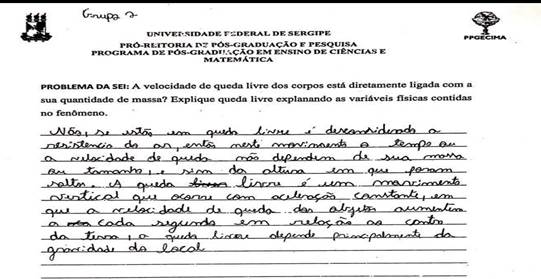 Grupo 2
UNIVERSIDADE FEDERAL DE SERGIPE
PRÓ-REITORIA DE PÓS-GRADUAÇÃO E PESQUISA
PROGRAMA DE PÓS-GRADUAÇÃO EM ENSINO DE CIÊNCIAS E
MATEMÁTICA
PPGECIMA
PROBLEMA DA SEI: A velocidade de queda livre dos corpos está diretamente ligada com a
sua quantidade de massa? Explique queda livre explanando as variáveis físicas contidas
no fenômeno.
Não, se estão em queda livre é desconsiderado a
resistencia do ar, então neste movimento o tempo ou
a velocidade de queda não dependem de sua massa
ou tamanho, e sim da altura em que foram
soltos. A queda livre é um movimento
vertical que ocorre com aceleração constante, em
que a velocidade de queda dos objetos aumentam
a cada segundo em relação ao centro
da terra, a queda livre depende principalmente da
gravidade do local